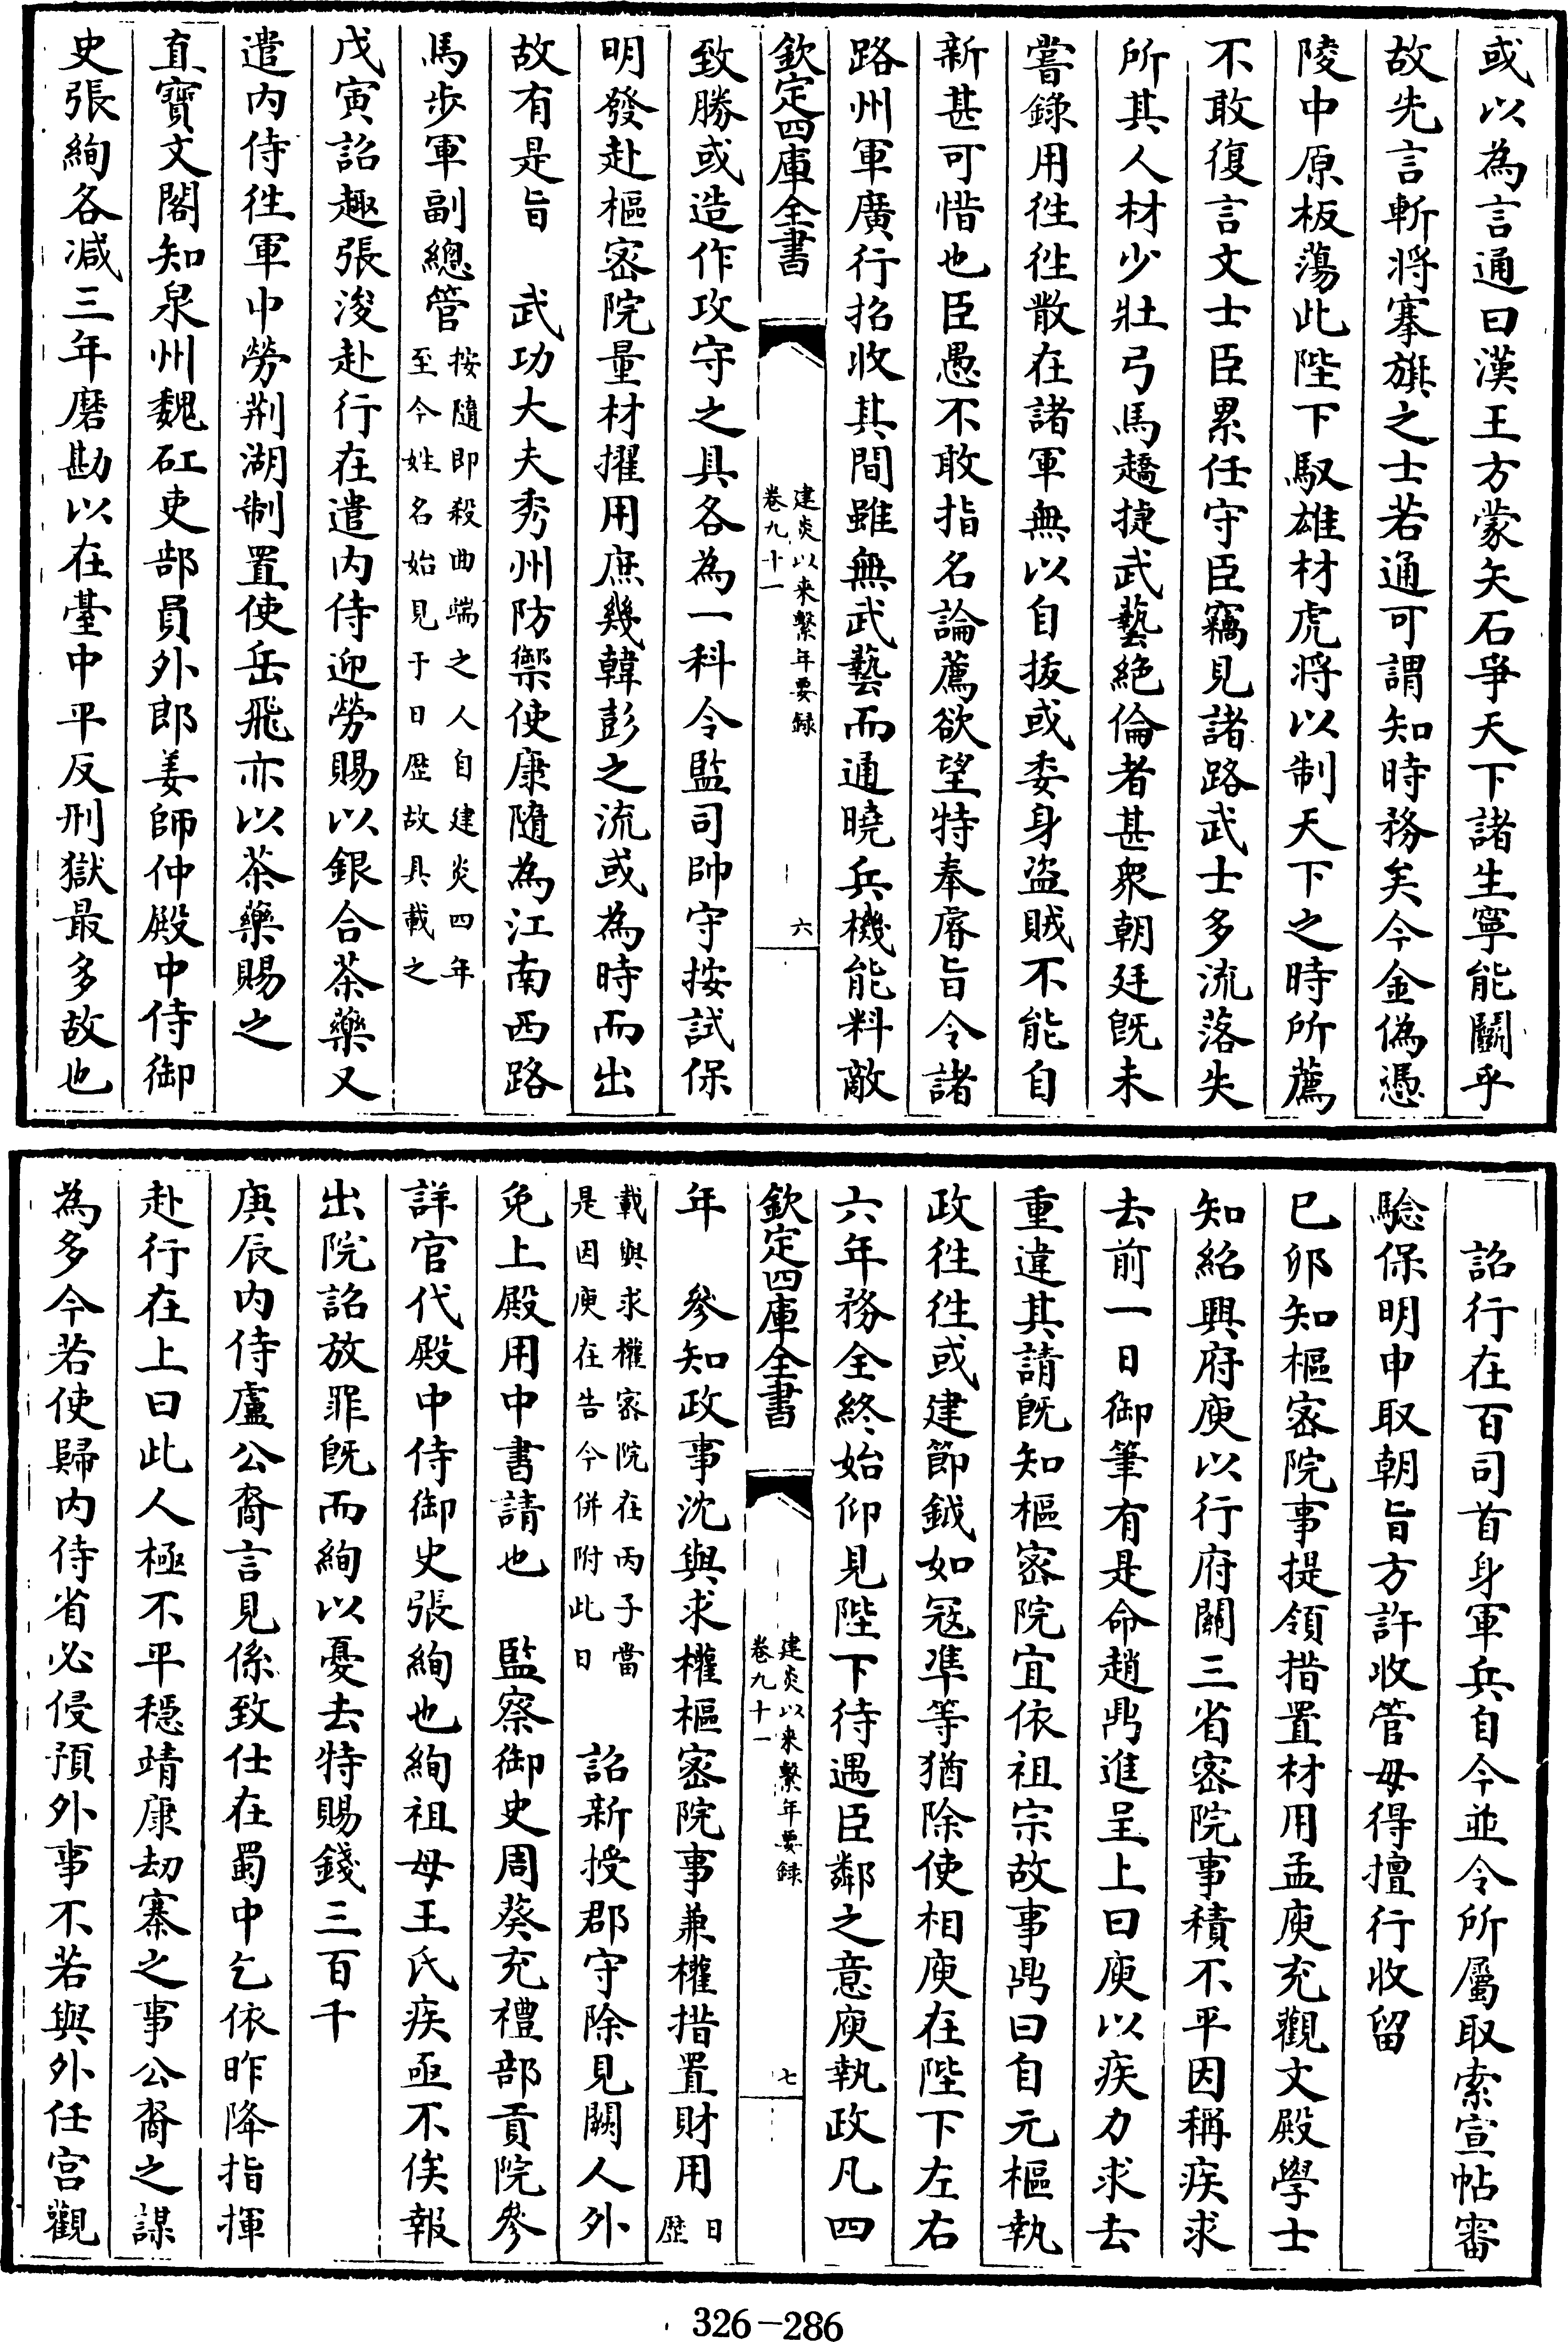 或以為言通曰漢王方蒙矢石爭天下諸生寧能鬭乎
故先言斬將搴旗之士若通可謂知時務矣今金偽憑
陵中原板蕩此陛下馭雄材虎將以制天下之時所薦
不敢復言文士臣累任守臣竊見諸路武士多流落失
所其人材少壯弓馬趫捷武藝絶倫者甚衆朝廷旣未
嘗錄用徃徃散在諸軍無以自拔或委身盜賊不能自
新甚可惜也臣愚不敢指名論薦欲望特奉睿旨令諸
路州軍廣行招收其間雖無武藝而通曉兵機能料敵
欽定四庫全書
建炎以来繫年要録
卷九十一
六
致勝或造作攻守之具各為一科令監司帥守按試保
明發赴樞密院量材擢用庶幾韓彭之流或為時而出
故有是旨　武功大夫秀州防禦使康隨為江南西路
馬步軍副總管
按隨即殺曲端之人自建炎四年
至今姓名始見于日歷故具載之
戊寅詔趣張浚赴行在遣内侍迎勞賜以銀合茶藥又
遣内侍徃軍中勞荆湖制置使岳飛亦以茶藥賜之
直寶文閣知泉州魏矼吏部員外郎姜師仲殿中侍御
史張絢各減三年磨勘以在臺中平反刑獄最多故也
詔行在百司首身軍兵自今並令所屬取索宣帖審
驗保明申取朝旨方許收管毋得擅行收留
已卯知樞密院事提領措置材用孟庾充觀文殿學士
知紹興府庾以行府關三省密院事積不平因稱疾求
去前一日御筆有是命趙鼎進呈上曰庾以疾力求去
重違其請旣知樞密院宜依祖宗故事鼎曰自元樞執
政徃徃或建節鉞如冦凖等猶除使相庾在陛下左右
六年務全終始仰見陛下待遇臣鄰之意庾執政凡四
欽定四庫全書
建炎以来繫年要録
卷九十一
七
年　參知政事沈與求權樞密院事兼權措置財用
日
歴
載與求權密院在丙子當
是因庾在告今併附此日
詔新授郡守除見闕人外
免上殿用中書請也　監察御史周葵充禮部貢院參
詳官代殿中侍御史張絢也絢祖母王氏疾亟不俟報
出院詔放罪旣而絢以憂去特賜錢三百千
庚辰内侍盧公裔言見係致仕在蜀中乞依昨降指揮
赴行在上曰此人極不平穩靖康刼寨之事公裔之謀
為多今若使歸内侍省必侵預外事不若與外任宫觀
326-286